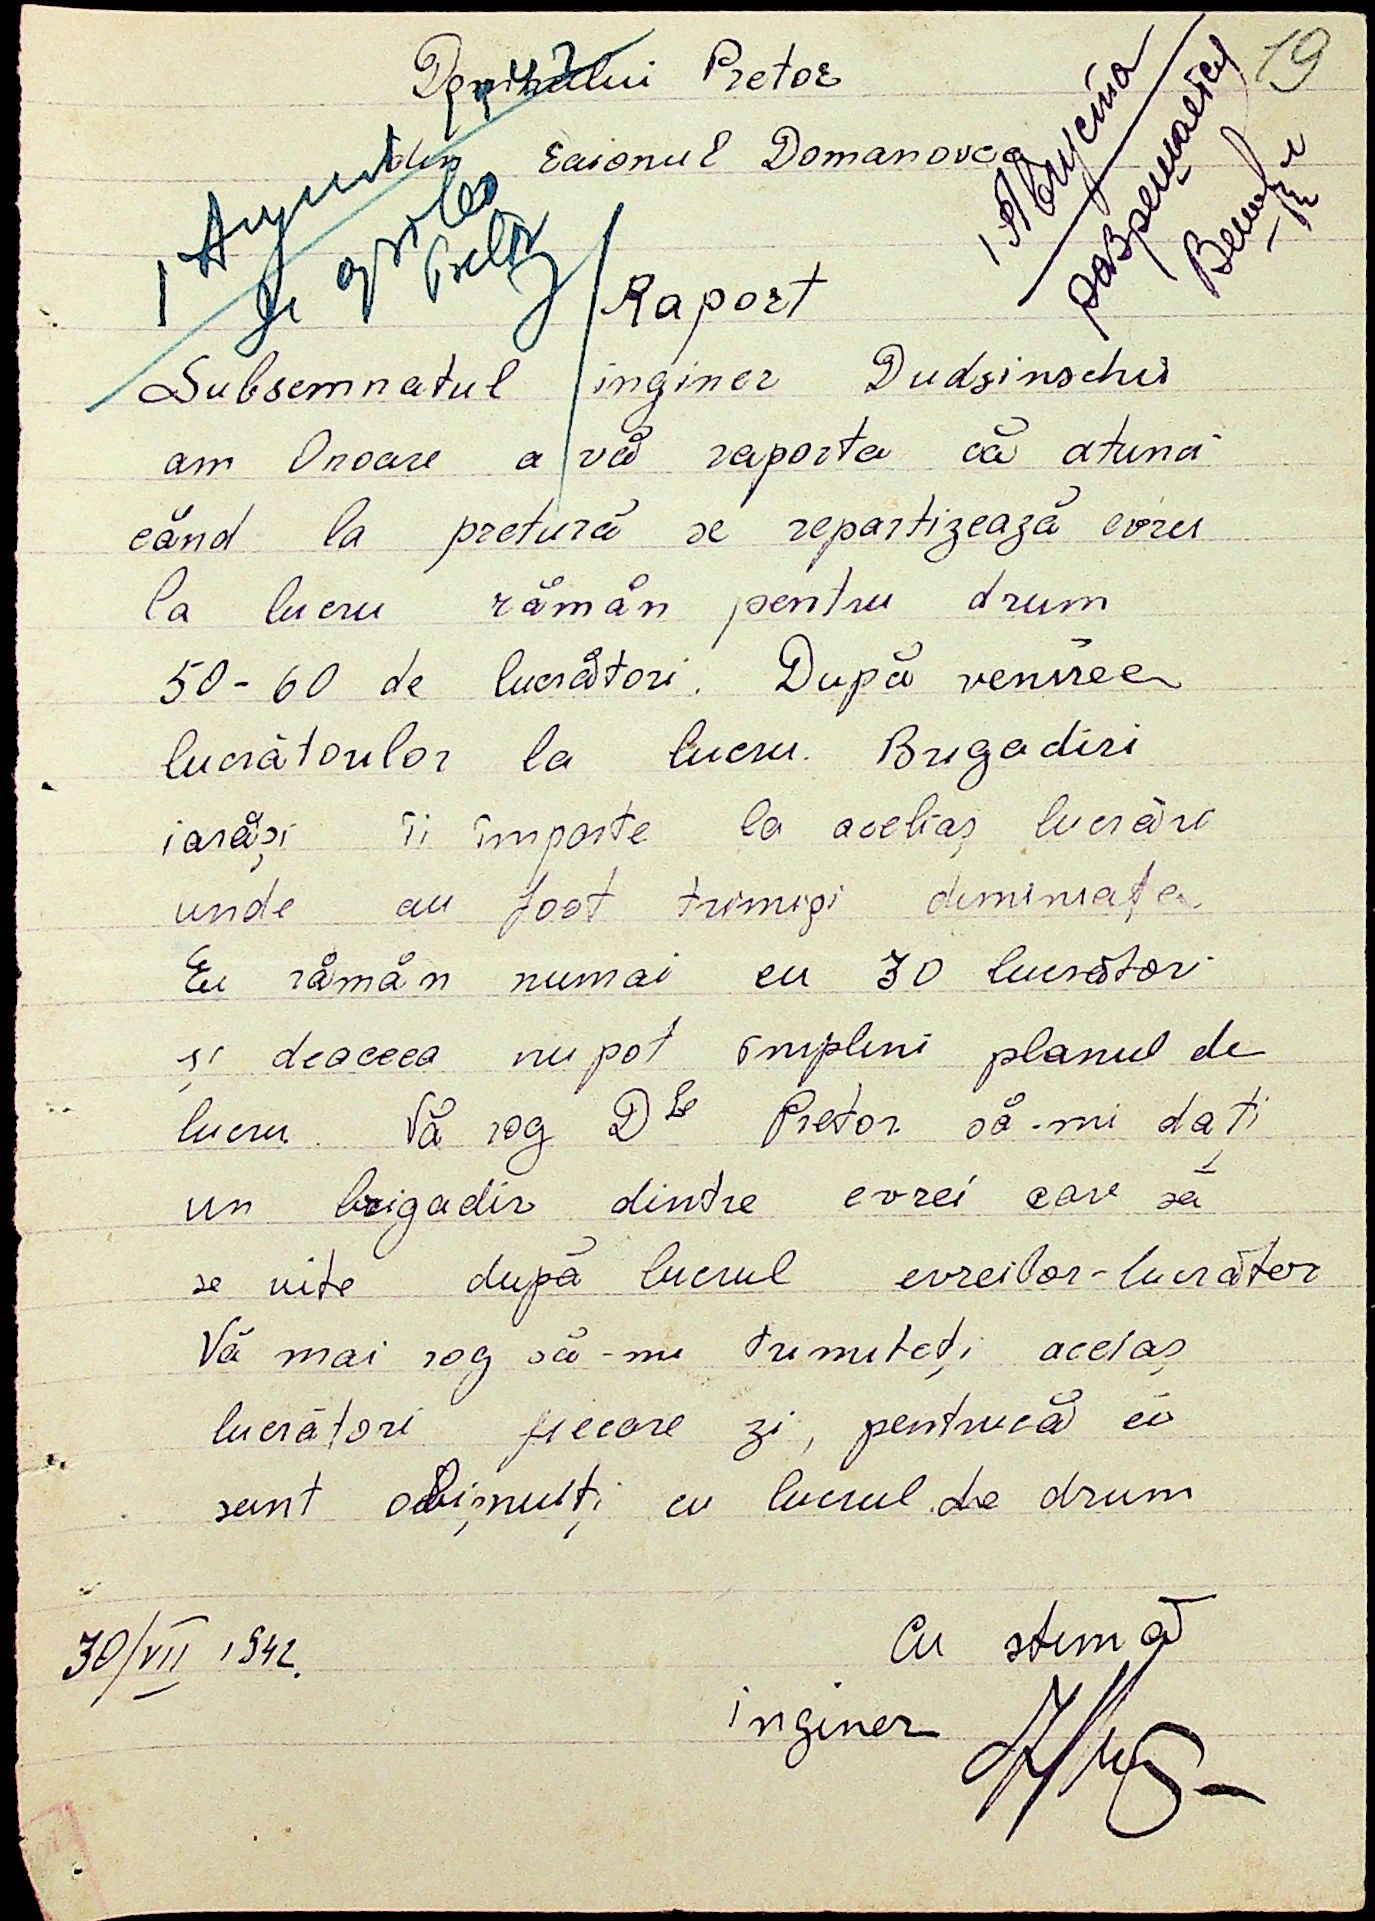 19
Domnului Pretor
din raionul Domanovca
1 August
Se aproba
Pretor
1 Августа
разрешается
Raport
Subsemnatul inginer Dudzinschi
am Onoare a vă raporta că atunci
când la pretură se repartizează evrei
la lucru rămăn pentru drum
50-60 de lucrători. După venirea
lucrătorilor la lucru. Brigadiri
iarăși îi împarte la aceliaș lucrări
unde au fost trimiși dimineața
Eu rămăn numai cu 30 lucrători
și deaceea nu pot împlini planul de
lucru. Vă rog Dle Pretor să-mi dați
un brigadir dintre evrei care să
se uite după lucrul evreilor-lucrător
Vă mai rog să-mi trimiteți acelaș
lucrători fiecare zi, pentrucă ei
sunt obișnuiți cu lucrul de drum
30/VII 1942.
Cu stimă
inginer